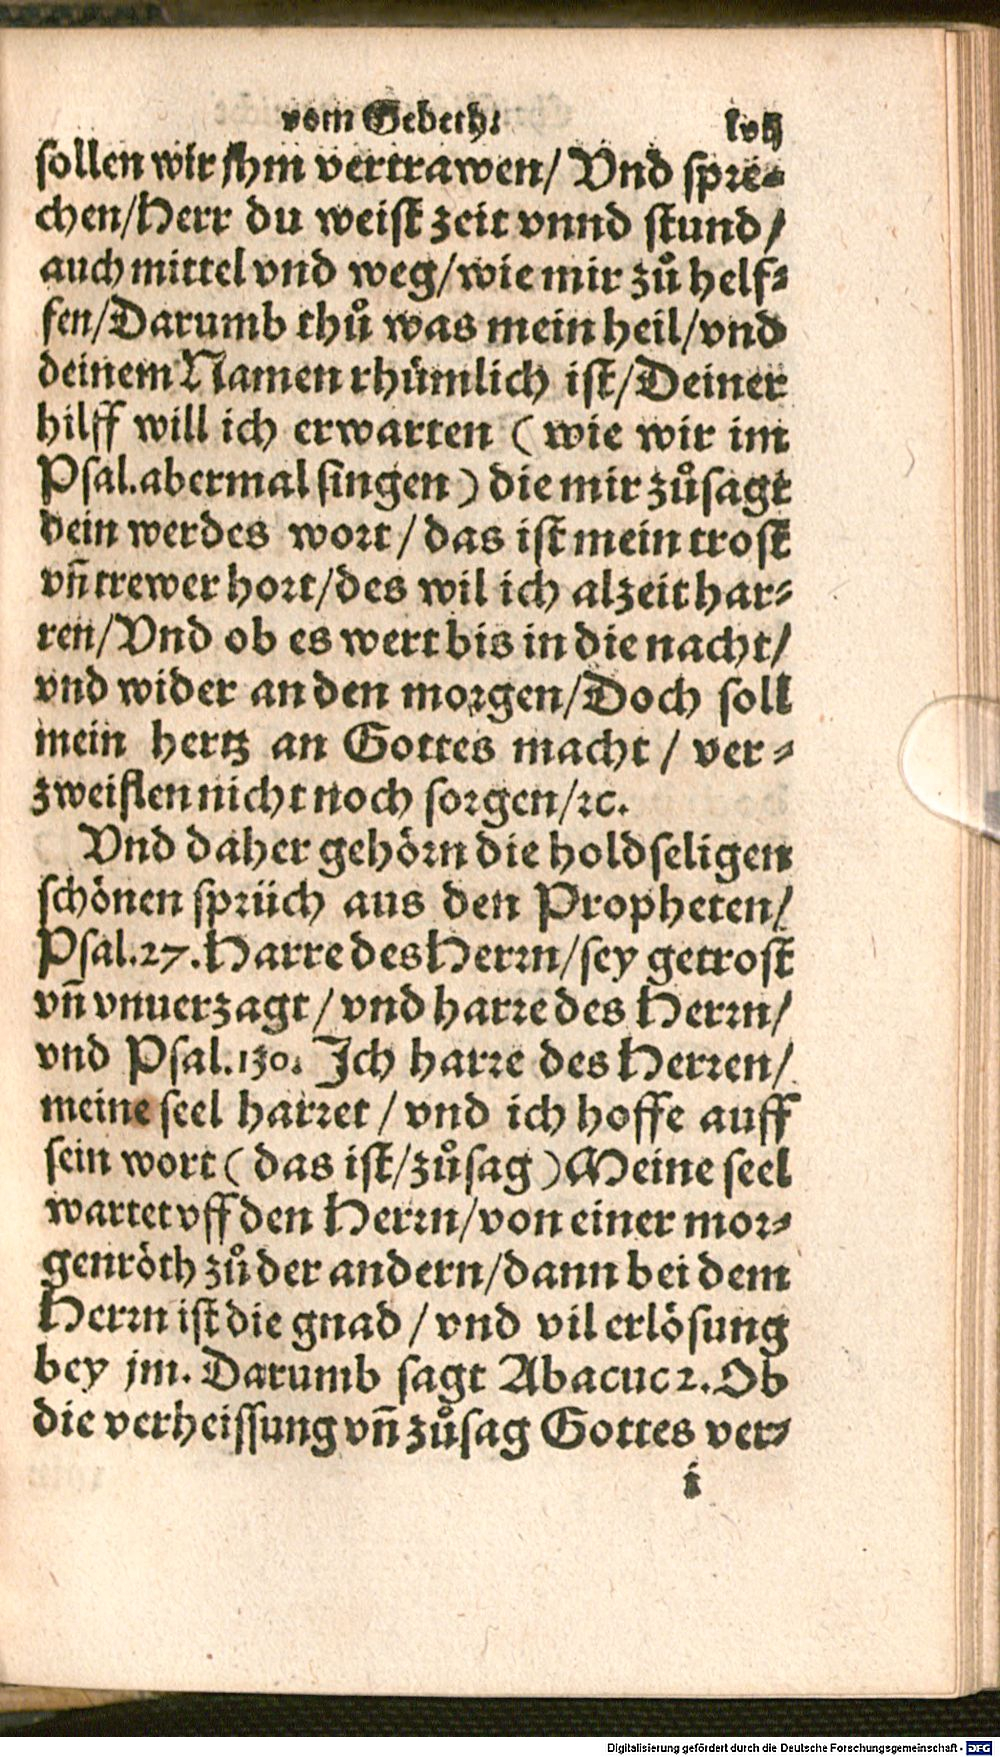 vom Gebeth.
sollen wir jhm vertrawen/ Vnd spre-
chen/Herr du weist zeit vnnd stund/
auch mittel vnd weg/wie mir zů helf-
fen/Darumb thů was mein heil/vnd
deinem Namen rhümlich ist/Deiner
hilff will ich erwarten (wie wir im
Psal.abermal singen) die mir zůsagt
dein werdes wort/das ist mein trost
vñ trewer hort/des wil ich alzeit har-
ren/Vnd ob es wert bis in die nacht/
vnd wider an den morgen/Doch soll
mein hertz an Gottes macht/ver-
zweiflen nicht noch sorgen/ꝛc.
Vnd daher gehörn die holdseligen
schönen sprüch aus den Propheten/
Psal.27.Harre des Herrn/sey getrost
vñ vnuerzagt/vnd harre des Herrn/
vnd Psal.130. Ich harre des Herren/
meine seel harret/vnd ich hoffe auff
sein wort (das ist/zůsag) Meine seel
wartet vff den Herrn/von einer mor-
genröth zů der andern/dann bei dem
Herrn ist die gnad/vnd vil erlösung
bey jm. Darumb sagt Abacuc 2. Ob
die verheissung vñ zůsag Gottes ver-
i
Digitalisierung gefördert durch die Deutsche Forschungsgemeinschaft - DFG